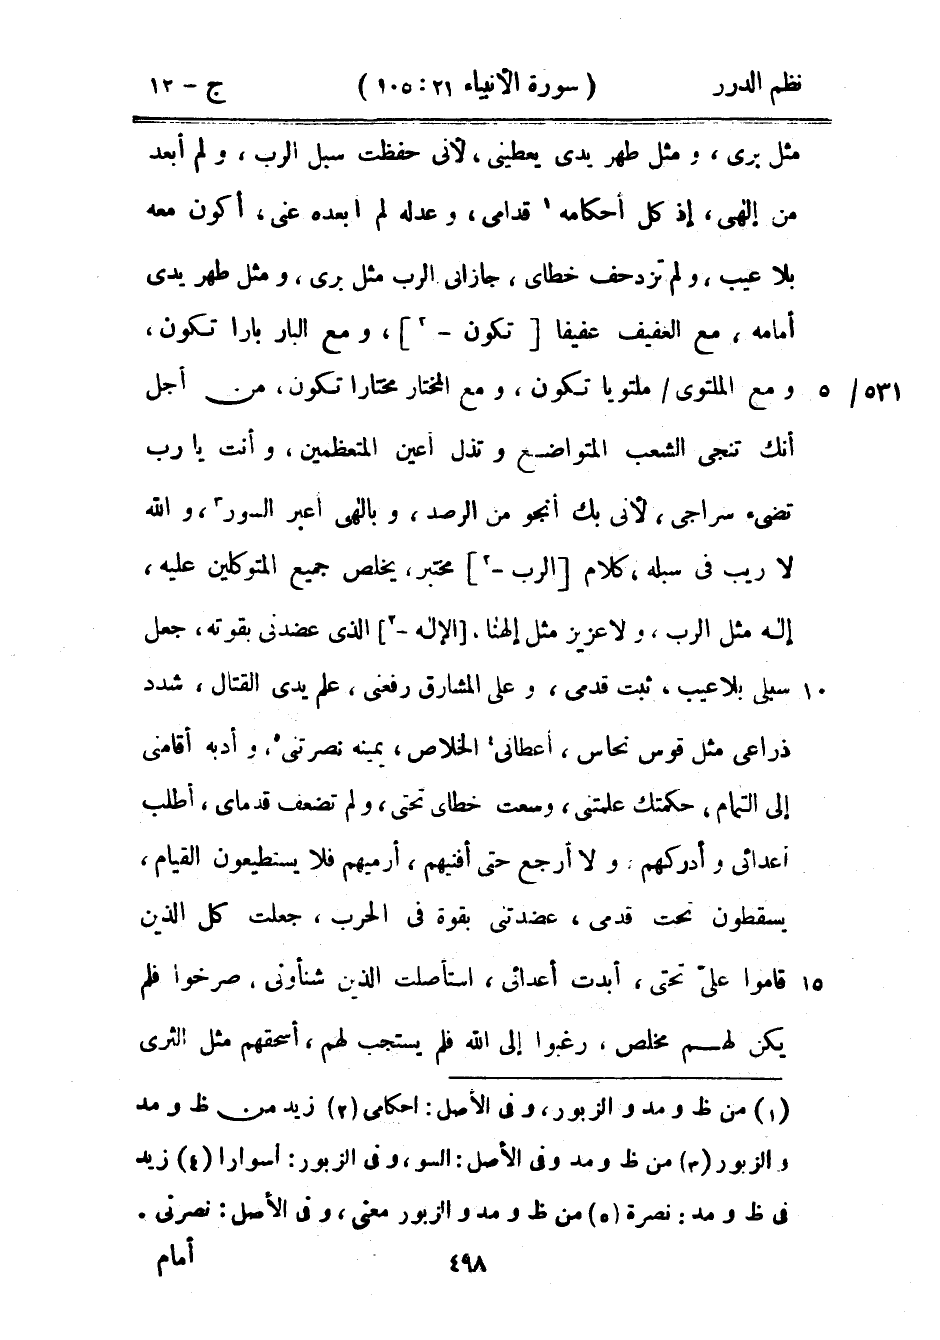 نظم الدرر ( سورة الأنبياء ٢١ : ١٠٥ ) ج - ١٢
مثل برى ، و مثل طهر يدى يعطينى ، لأنى حفظت سبل الرب ، و لم أبعد
من إلهى ، إذ كل أحكامه ١ قدامى ، و عدله لم أبعده عنى ، أكون معه
بلا عيب ، و لم تزدحف خطاى ، جازانى الرب مثل برى ، و مثل طهر يدى
أمامه ، مع العفيف عفيفا [ تكون - ٢ ] ، و مع البار بارا تكون ،
٥٣١ / ٥ و مع الملتوى / ملتويا تكون ، و مع المختار مختارا تكون ، من أجل
أنك تنجى الشعب المتواضع و تذل أعين المتعظمين ، و أنت يا رب
تضىء سراجى ، لأنى بك أنجو من الرصد ، و بالهى أعبر السور ٣ ، و الله
لا ريب فى سبله ، كلام [ الرب - ٢ ] مختبر ، يخلص جميع المتوكلين عليه ،
إله مثل الرب ، و لا عزيز مثل إلهنا . [ الإله - ٢ ] الذى عضدنى بقوته ، جعل
١٠ سبلى بلا عيب ، ثبت قدمى ، و على المشارق رفعنى ، علم يدى القتال ، شدد
ذراعى مثل قوس نحاس ، أعطانى ٤ الخلاص ، يمينه نصرتنى ٥ ، و أدبه أقامنى
إلى التمام ، حكمتك علمتنى ، وسعت خطاى تحتى ، و لم تضعف قدماى ، أطلب
أعدائى و أدركهم . و لا أرجع حتى أفنيهم ، أرميهم فلا يستطيعون القيام ،
يسقطون تحت قدمى ، عضدتنى بقوة فى الحرب ، جعلت كل الذين
١٥ قاموا علىّ تحتى ، أبدت أعدائى ، استأصلت الذين شنأونى . صرخوا فلم
يكن لهم مخلص ، رغبوا إلى الله فلم يستجب لهم ، أسحقهم مثل الثرى
(١) من ظ و مد و الزبور ، و فى الأصل : احكامى (٢) زيد من ظ و مد
و الزبور (٣) من ظ و مد و فى الأصل : السو ، و فى الزبور : أسوارا (٤) زيد
فى ظ و مد : نصرة (٥) من ظ و مد و الزبور معنى ، و فى الأصل : نصرتى .
أمام
٤٩٨